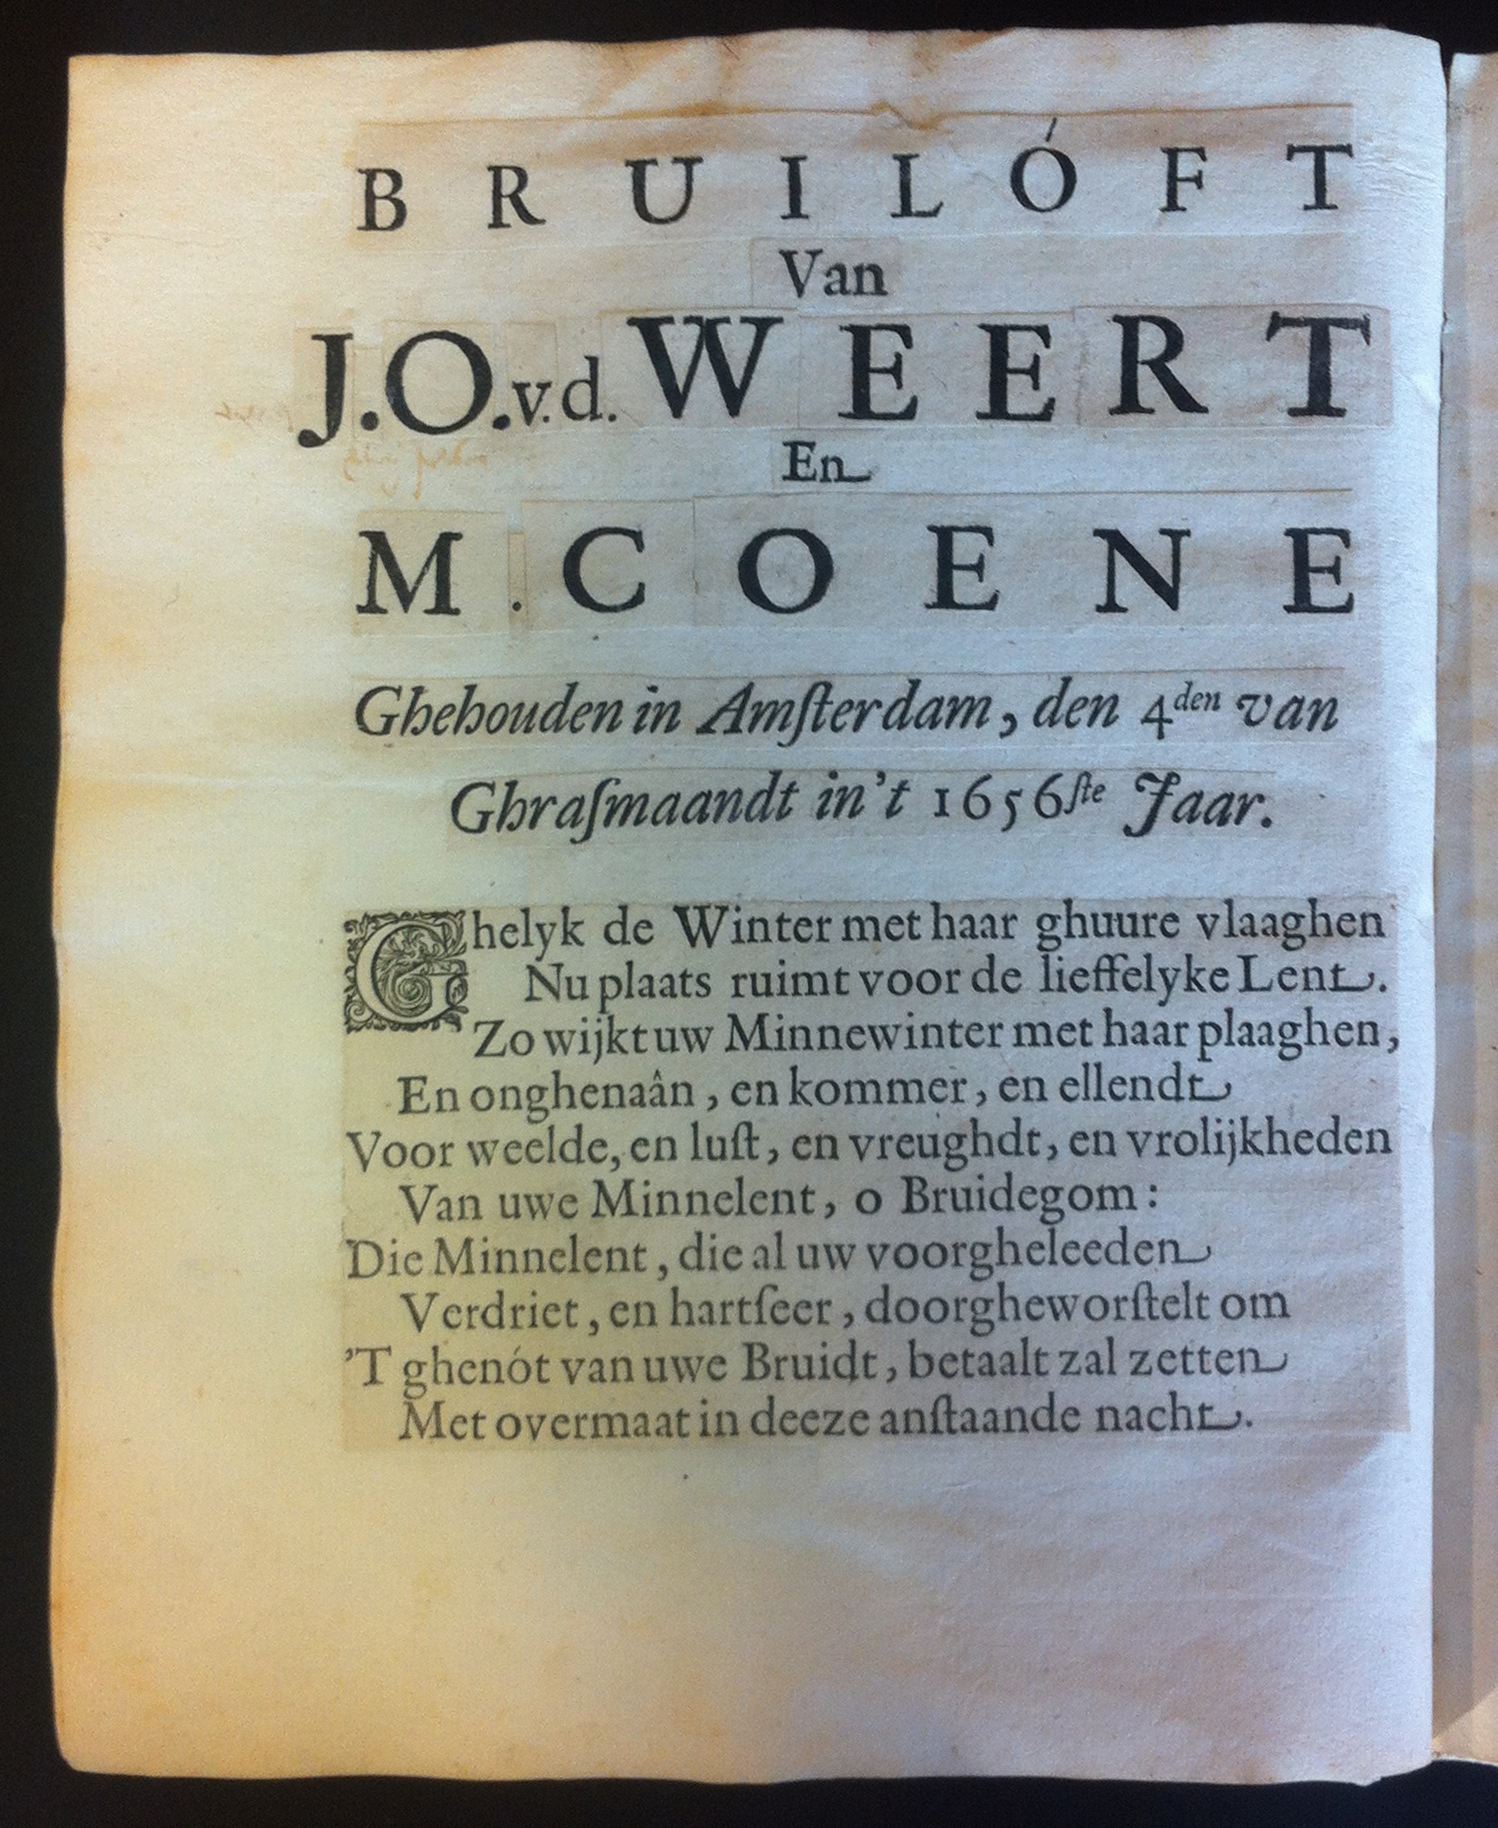 BRUILÓFT
Van
J.O.v.d.WEERT
En
M.COENE
Ghehouden in Amſterdam, den 4den van
Ghraſmaandt in't 1656ſte Jaar.
Ghelyk de Winter met haar ghuure vlaaghen
Nu plaats ruimt voor de lieffelyke Lent.
Zo wijkt uw Minnewinter met haar plaaghen,
En onghenaân, en kommer, en ellendt
Voor weelde, en luſt, en vreughdt, en vrolijkheden
Van uwe Minnelent, o Bruidegom:
Die Minnelent, die al uw voorgheleeden
Verdriet, en hartſeer, doorgheworſtelt om
'T ghenót van uwe Bruidt, betaalt zal zetten
Met overmaat in deeze anſtaande nacht.